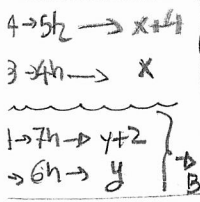 4→5h → x+4
3→4h → x
1→7h → y+2
→6h → y
→ B